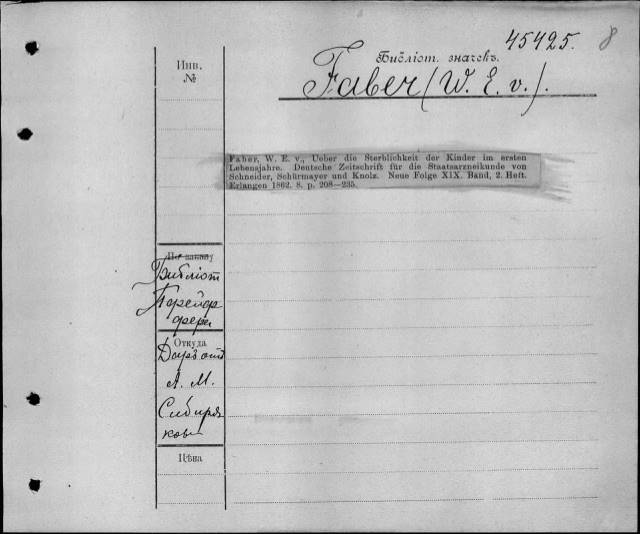 45425. 8
Библіот. значекъ.
Инв.
№
Faber (W. E. v.).
Faber, W. E. v., Ueber die Sterblichkeit der Kinder im ersten
Lebensjahre. Deutsche Zeitschrift für die Staatsarzneikunde von
Schneider, Schürmayer und Knolz. Neue Folge XIX. Band, 2. Heft.
Erlangen 1862. 8. p. 208—235.
Библіот
Порейдр
фера
Откуда
Даръ отъ
А. М.
Сибиря
кова
Цѣна